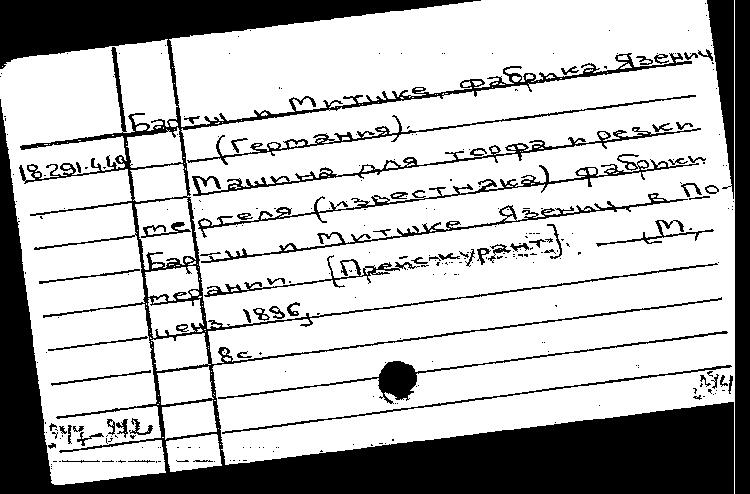 Барты и Митшке, фабрика. Язенич
(Германия).
18.291.4.49
Машина для торфа и резки
мергеля (известняка) фабрики
Барты и Митшке Язенич, в По-
мерании. [Прейс-курант]. — [М.,
ценз. 1896].
8 с.